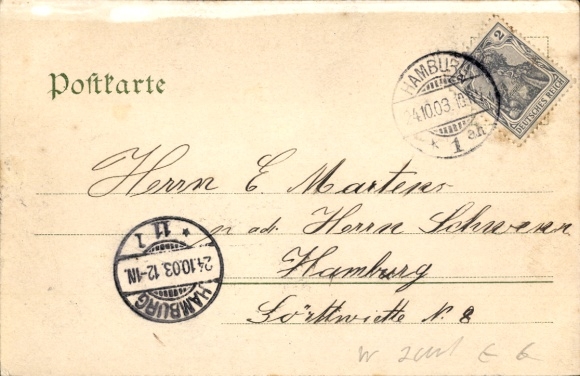 Postkarte
2
DEUTSCHES REICH
HAMBURG
24.10.03.
* 1 ah
Herrn E. Martens
adr. Herrn Schwenn
Hamburg
N. 8
HAMBURG
24.10.03. 12-1N.
* 11 1